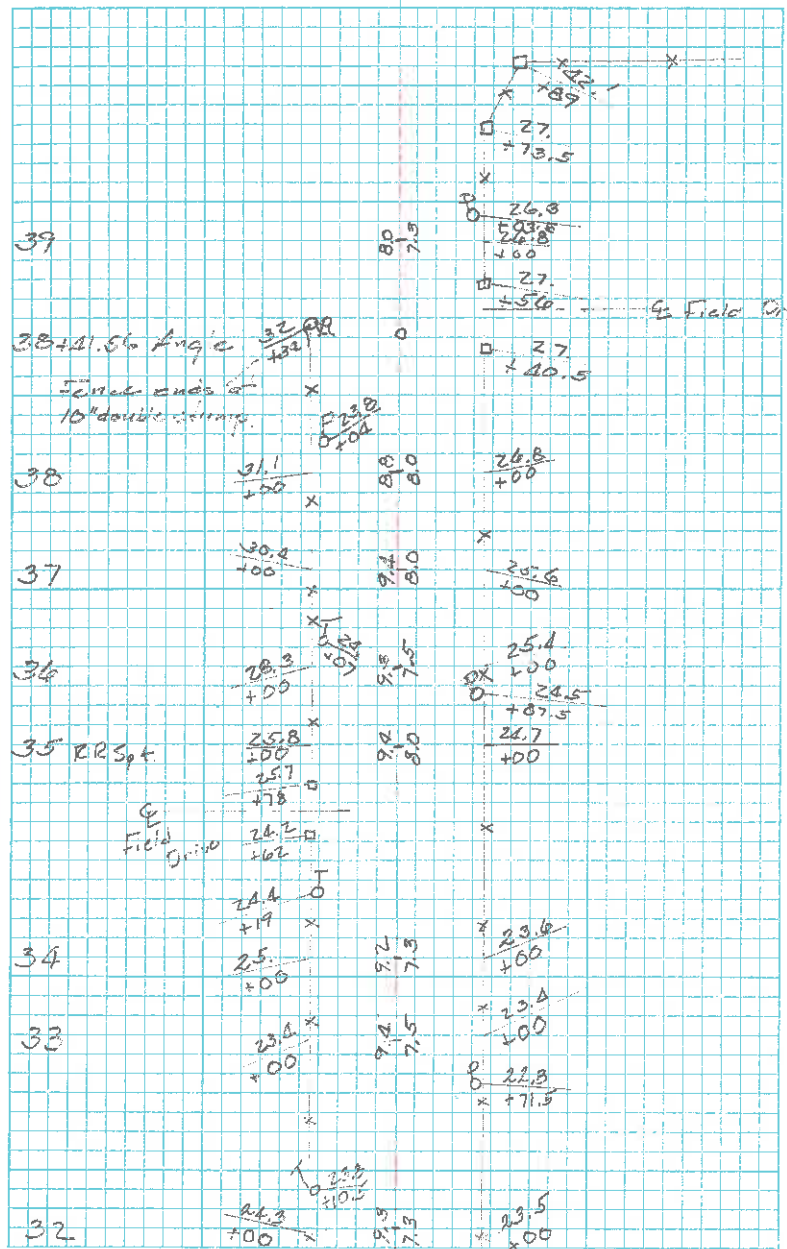 42.1
+89
27.
+73.5
26.8
39
8.0
7.5
26.8
+00
27.
+56
℄ Field Dr
38+41.56 Angle
32
+34
27
+40.5
Fence ends @
10" double stump.
23.8
+04
38
31.1
+00
8.8
8.0
26.8
+00
37
30.4
+00
9.4
8.0
25.6
+00
24
+07
36
28.3
+00
9.3
7.5
25.4
+00
24.5
+87.5
35 RR Spk
25.8
+00
9.4
8.0
24.7
+00
25.7
+78
℄
Field
Drive
24.2
+62
24.4
+19
34
25.
+00
9.2
7.3
23.6
+00
33
23.4
+00
9.4
7.5
23.4
+00
22.3
+71.5
32
24.3
+00
9.3
7.3
23.5
+00